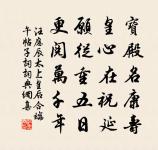 寶殿名康壽
皇心在祝延
願從重五日
更閱萬千年
汪應辰太上皇后合端
午帖子詞詞典網集